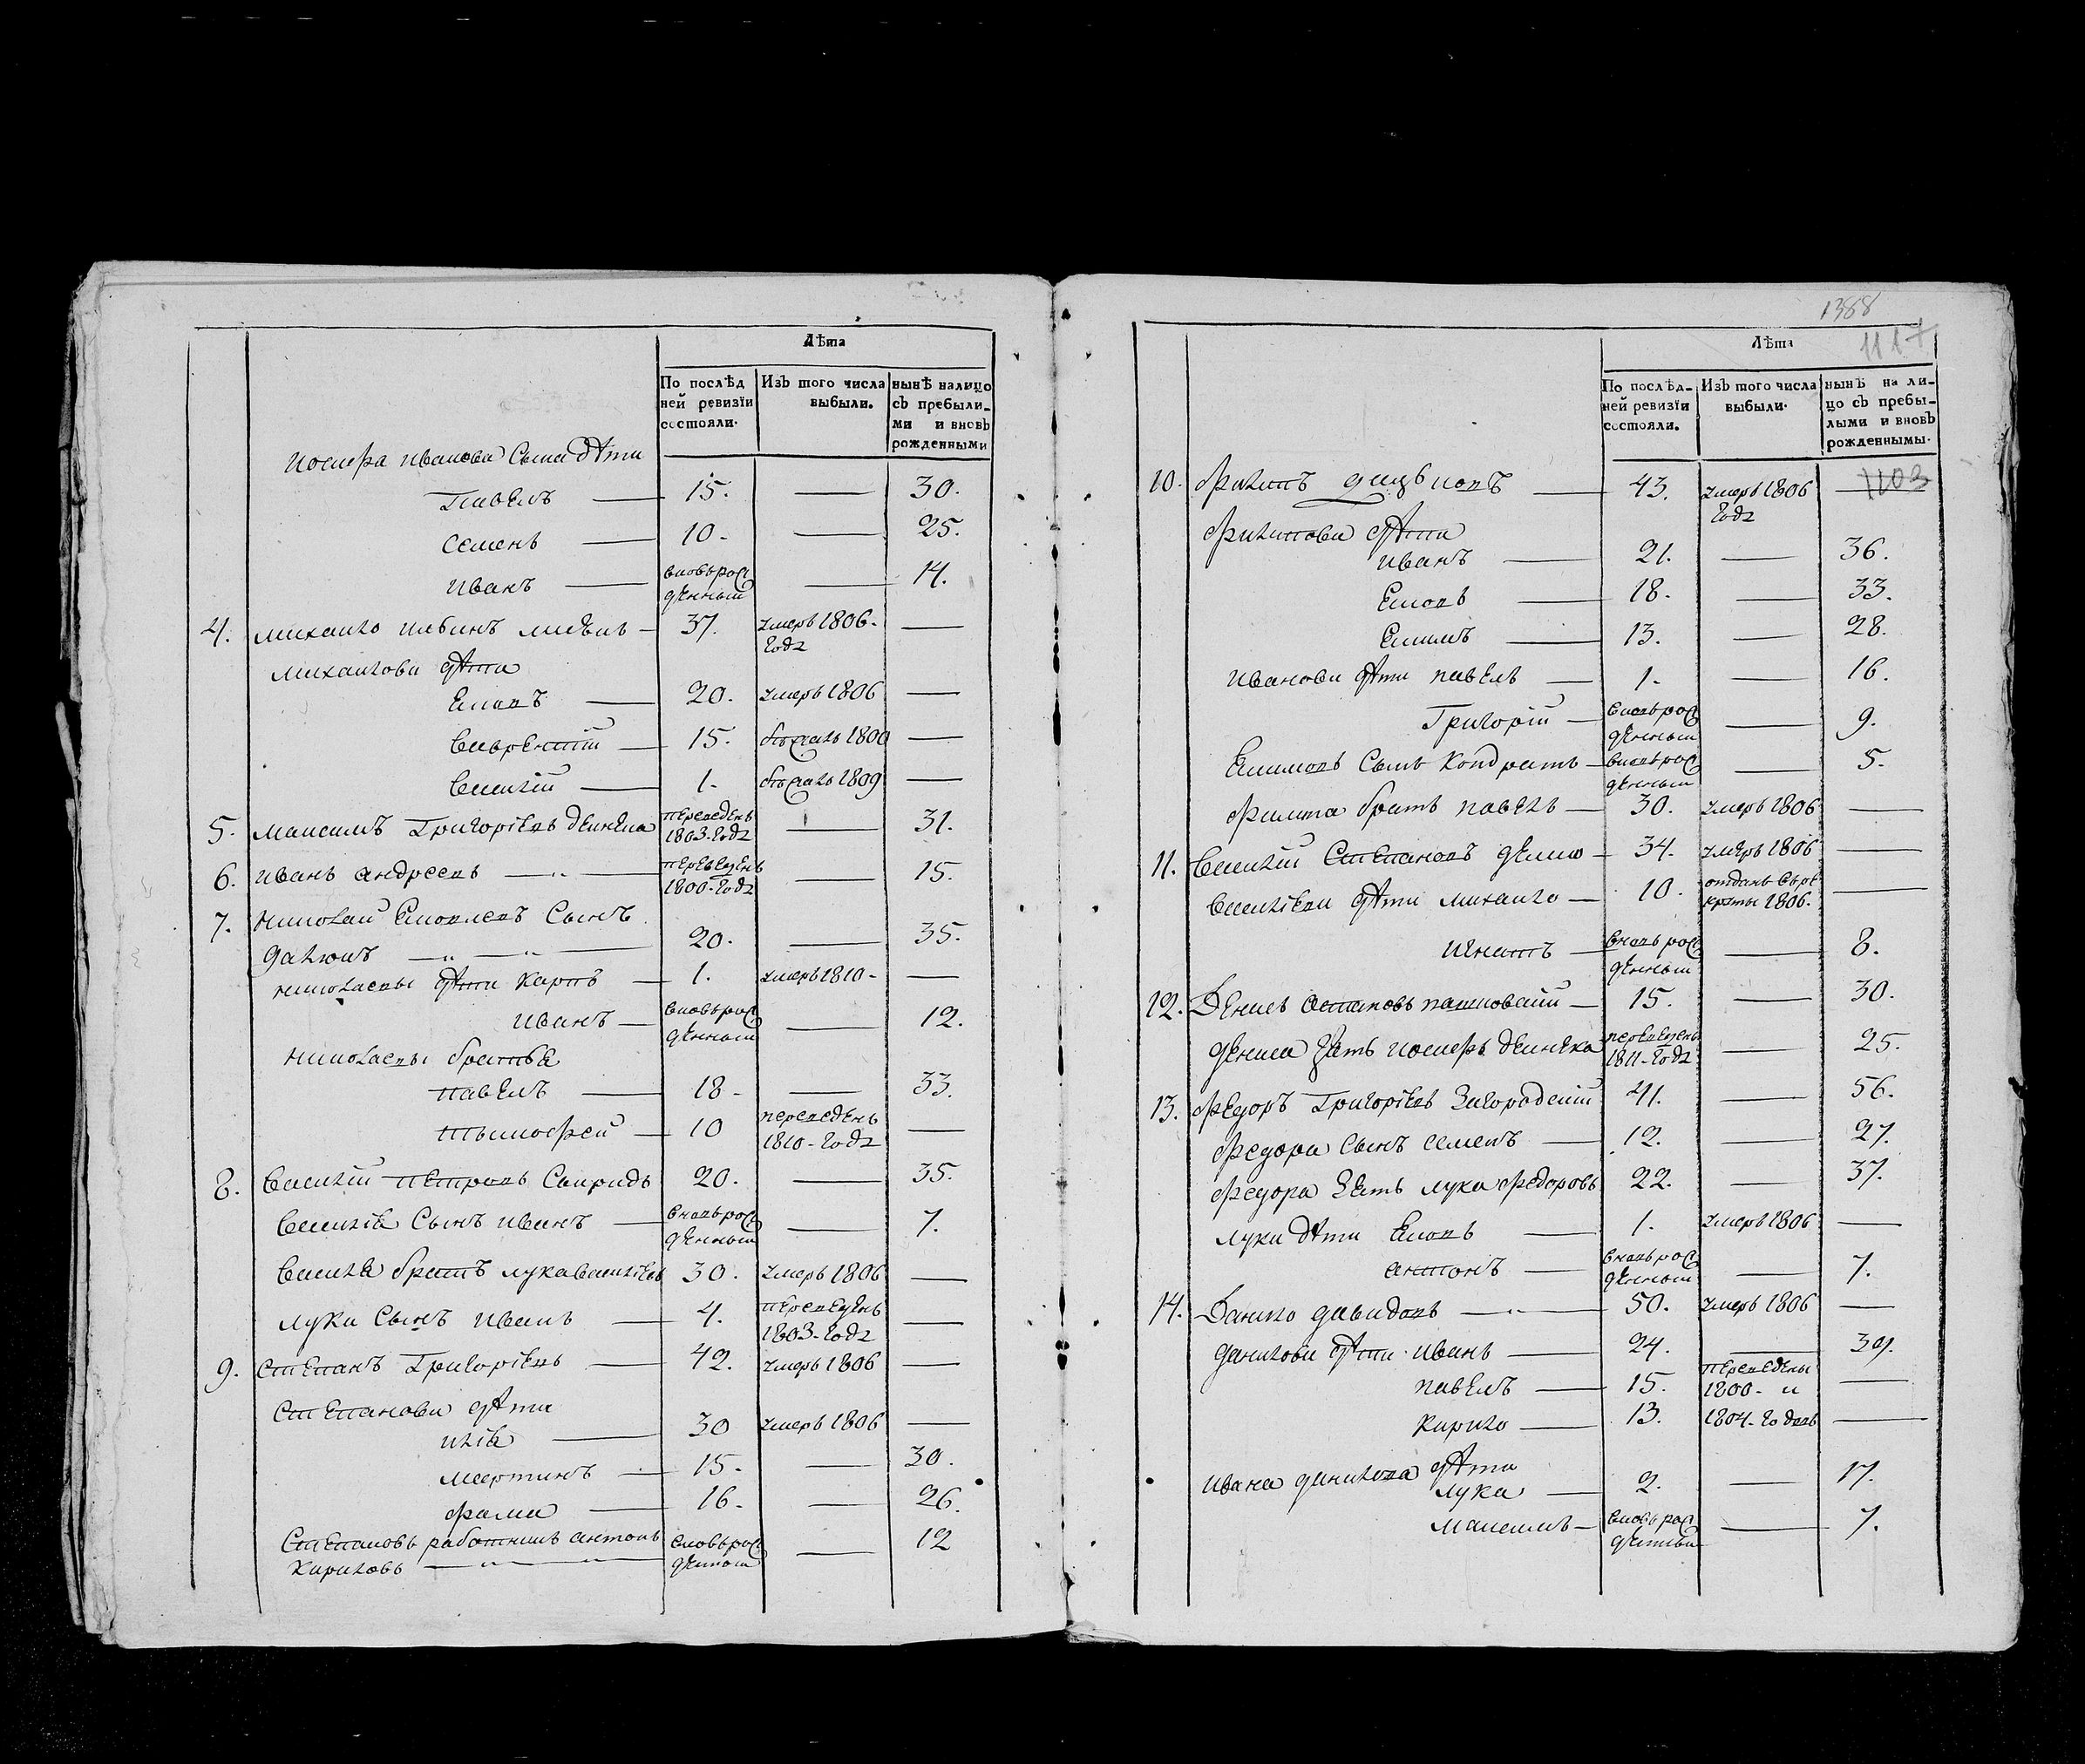 Лѣта
По послѣд
ней ревизїи
состояли.
Изъ того числа
выбыли.
нынѣ налицо
съ пребыли-
ми и вновь
рожденными
Иосифа иванова сына дѣти
Павелъ — 15. — 30.
Семенъ — 10. — 25.
Иванъ — вновьрож
денный — 14.
4. Михайло ильинъ — 37. умеръ 1806-
года —
Михайлови дѣти
20. умеръ 1806 —
Лаврентий — 15. 1800 —
Василий — 1. 1809 —
5. Максимъ Григориевъ дейнека переведенъ
1803-года — 31.
6. Иванъ андреевъ — „ — переведенъ
1800-года — 15.
7. Николай Сынъ
— „ — „ — 20. — 35.
Николаевы дѣти Карпъ — 1. умеръ 1810- —
Иванъ — вновьрож
денный — 12.
Николаевы братья
Павелъ — 18 - — 33.
Тимофей — 10 переведенъ
1810-года —
8. Василий Петровъ Свиридъ 20. — 35.
Василия Сынъ Иванъ — вновьрож
денный — 7.
Василия братъ лука Василиевъ 30. умеръ 1806 —
Луки Сынъ Иванъ — 4. переведенъ
1803-года —
9. Степанъ Григориевъ — 42. умеръ 1806 —
Степанови дѣти
илія — 30 умеръ 1806 —
Мартинъ — 15. — 30.
Фама — 16. — 26.
Степановъ работникъ антонъ вновьрож
Кириловъ — „ — „ — денной — 12
1388
1117
Лѣта
По послѣд-
ней ревизїи
состояли.
Изъ того числа
выбыли.
нынѣ на ли-
цо съ пребы-
лыми и вновь
рожденнымы.
1103
10. Филипъ — 43. умеръ 1806
года —
Филипови дѣти
Иванъ — 21. — 36.
18. — 33.
13. — 28.
Иванови дѣти павелъ — 1. — 16.
Григорій — вновьрож
денный — 9.
Сынъ Кондратъ — вновьрож
денный — 5.
Филипа братъ павелъ — 30. умеръ 1806 —
11. Василий Степановъ — 34. умеръ 1806 —
Василиеви дѣти михайло — 10. отданъ въ ре
круты 1806. —
Игнатъ — вновьрож
денный — 8.
12. Денисъ — 15. — 30.
Дениса зять иосифъ дейнека переведенъ
1811-года — 25.
13. Федоръ Григориевъ Загородний 41. — 56.
Федора Сынъ Семенъ — 12. — 27.
Федора Зять лука федоровъ 22. — 37.
Луки дѣти — 1. умеръ 1806 —
антонъ — вновьрож
денный — 7.
14. Данило давидовъ — „ — 50. умеръ 1806 —
Данилови дѣти иванъ — 24. — 39.
павелъ — 15. переведены
1800- и —
Кирило — 13. 1804-годовъ —
Ивана данилова дѣти
лука — 2. — 17.
Максимъ — вновьрож
— 7.